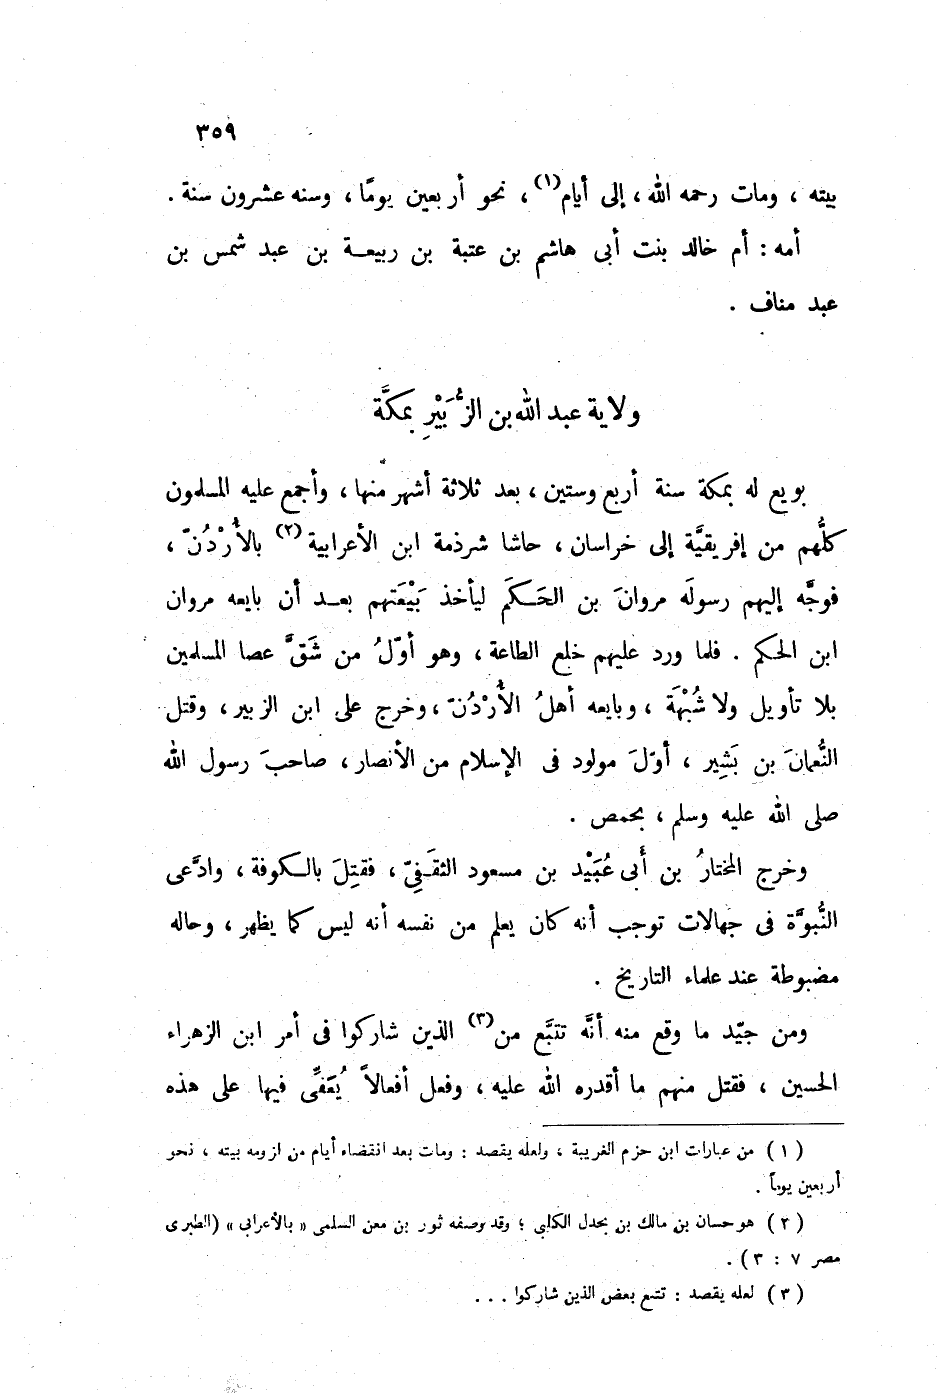 ٣٥٩
بيته ، ومات رحمه الله ، إلى أيام(١) ، نحو أربعين يومًا ، وسنه عشرون سنة .
أمه : أم خالد بنت أبى هاشم بن عتبة بن ربيعـة بن عبد شمس بن
عبد مناف .
ولاية عبد الله بن الزُّبَيْرِ بمكَّة
بويع له بمكة سنة أربع وستين ، بعد ثلاثة أشهر منها ، وأجمع عليه المسلمون
كلُّهم من إفريقيَّة إلى خراسان ، حاشا شرذمة ابن الأعرابية(٢) بالأُرْدُنّ ،
فوجَّه إليهم رسولَه مروانَ بن الحَـكَم ليأخذ بَيْعَتهم بعـد أن بايعه مروان
ابن الحكم . فلما ورد عليهم خلع الطاعة ، وهو أوّلُ من شَقَّ عصا المسلمين
بلا تأويل ولا شُبْهَة ، وبايعه أهلُ الأُرْدُنّ ، وخرج على ابن الزبير ، وقتل
النُّعمانَ بن بَشِير ، أوّلَ مولود فى الإسلام من الأنصار ، صاحبَ رسول الله
صلى الله عليه وسلم ، بحمص .
وخرج المختارُ بن أَبى عُبَيْد بن مسعود الثقَـفِىّ ، فقتِلَ بالـكوفة ، وادَّعى
النُّبوَّة فى جهالات توجب أنه كان يعلم من نفسه أنه ليس كما يظهر ، وحاله
مضبوطة عند علماء التاريخ .
ومن جيّد ما وقع منه أنَّه تتبَّع من(٣) الذين شاركوا فى أمر ابن الزهراء
الحسين ، فقتل منهم ما أقدره الله عليه ، وفعل أفعالاً يُعَفِّى فيها على هذه
(١) من عبارات ابن حزم الغريبة ، ولعله يقصد : ومات بعد انقضاء أيام من لزومه بيته ، نحو
أربعين يوماً .
(٢) هو حسان بن مالك بن بحدل الكلبى ؛ وقد وصفه ثور بن معن السلمى « بالأعرابى » (الطبرى
مصر ٧ : ٣) .
(٣) لعله يقصد : تتبع بعض الذين شاركوا . . .